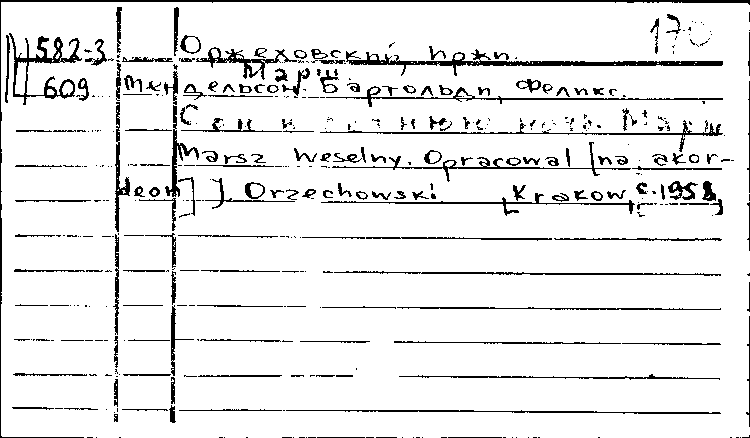 170
582-3 Оржеховский, пржп.
Марш
609 Мендельсон-Бартольди, Феликс.
Сон в летнюю ночь. Марш
Marsz weselny. Opracowal [na akor-
deon] J. Orzechowski [Krakow, c.1958]